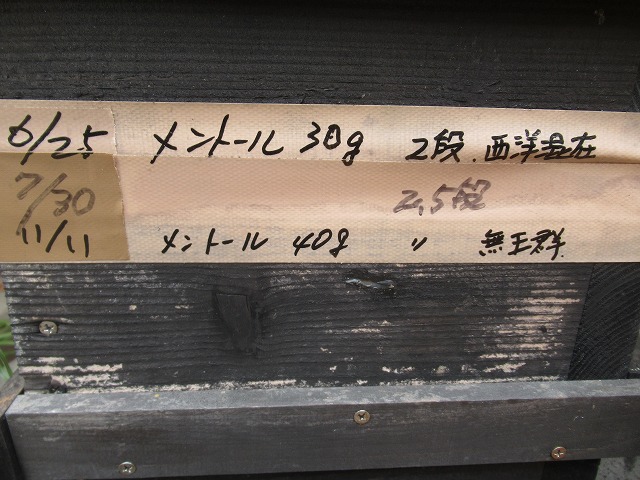 6/25 メントール 30g 2段 西洋混在
7/30 2.5段
11/11 メントール 40g 〃 無王群